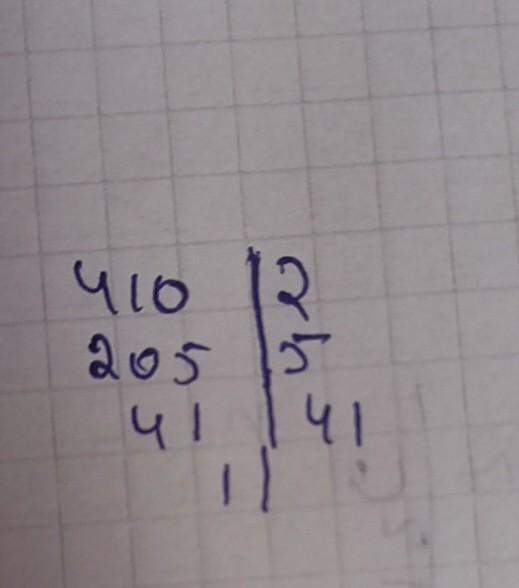 410 | 2
205 | 5
41 | 41
1 |